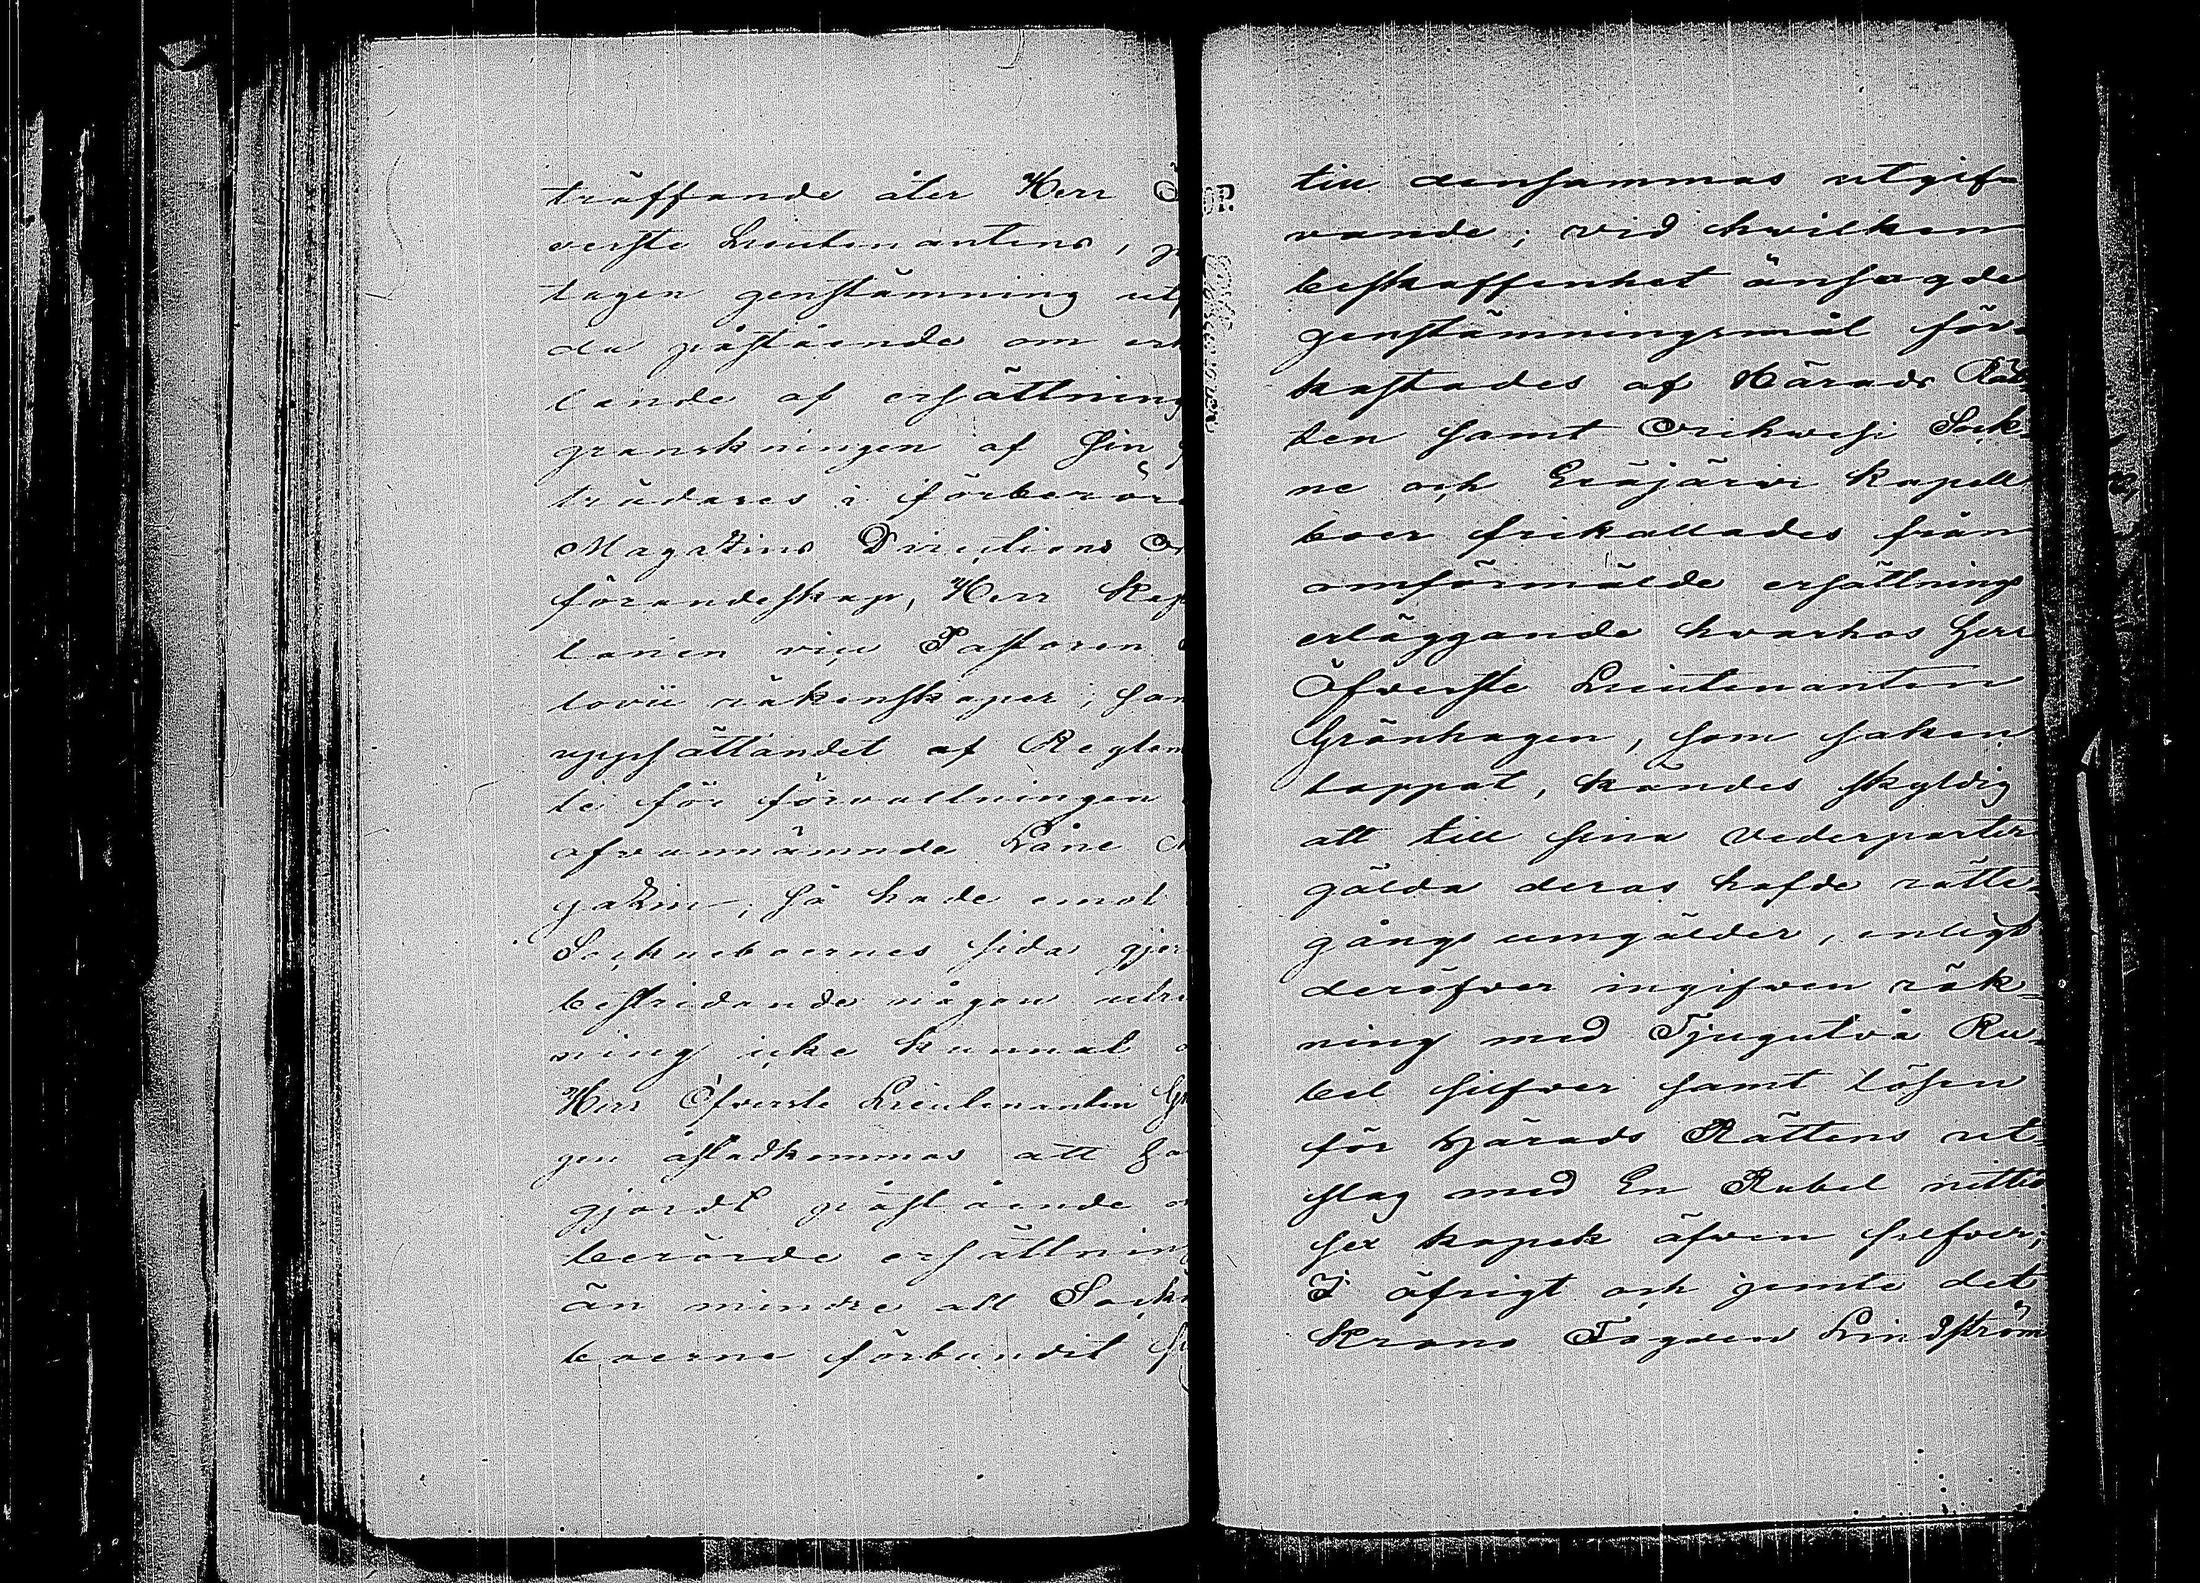 träffande åter Herr Ö
verste Lieutenantens, 
tagen genstämning ut
da påstående om er
lande af ersättning
granskningen af sin
trädares i förberör
Magazins Directions Or
förandeskap, Herr Kap
lanen vice Pastoren
lovii räkenskaper, sam
uppsättandet af Reglem
te för förvaltningen
ofvannämnde Låne M
gazin; så hade emot
Socknboernes sida gjor
bestridande någon utre
ning icke kunnat
Herr Öfverste Lieutenanten Gr
gen åstadkommas att ha
gjordt påstående o
berörde ersättning
än mindre att Sock
boerne förbundit si
till densammas utgif-
vande; vid hvilken
beskaffenhet änsagde
genstämningsmål för-
kastades af Härads Rät
ten samt Orihvesi Sock-
ne och Eräjärvi Kapell
boer frikallades från
omförmälde ersättnings
erläggande hvarhos Herr
Öfverste Lieutenanten
Grönhagen, som saken
tappat, kändes skyldig
att till sina vederparter
gälda deras hafde rätte-
gångs umgälder, enligt
deröfver ingifven räk-
ning med Tjugutvå Ru-
bel silfver samt lösen
för Härads Rättens ut-
slag med En Rubel nittio
sex kopek äfven silfver;
I öfrigt och jemte det
Krono Fogden Lindström